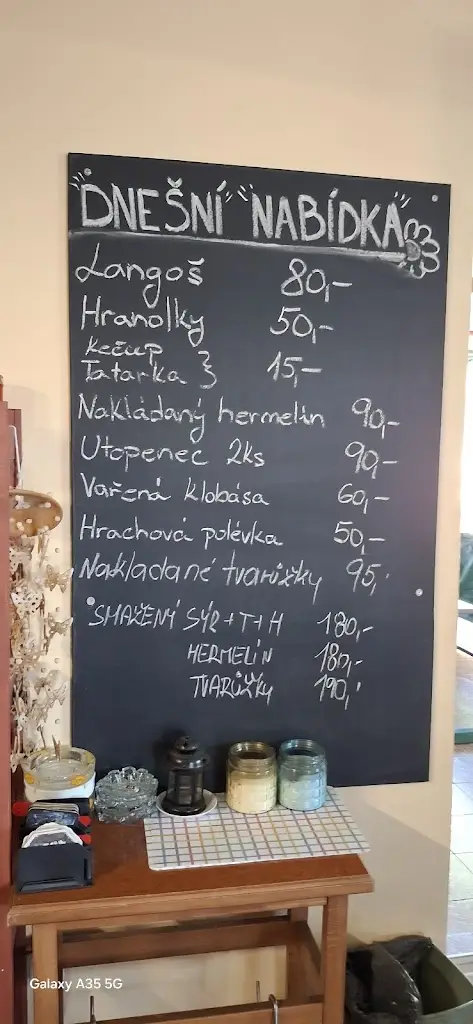 DNEŠNÍ NABÍDKA
Langoš 80,-
Hranolky 50,-
Kečup
Tatarka } 15,-
Nakládaný hermelín 90,-
Utopenec 2ks 90,-
Vařená klobása 60,-
Hrachová polévka 50,-
Nakládané tvarůžky 95,-
SMAŽENÝ SÝR+T+H 180,-
HERMELÍN 180,-
TVARŮŽKY 190,-
Galaxy A35 5G